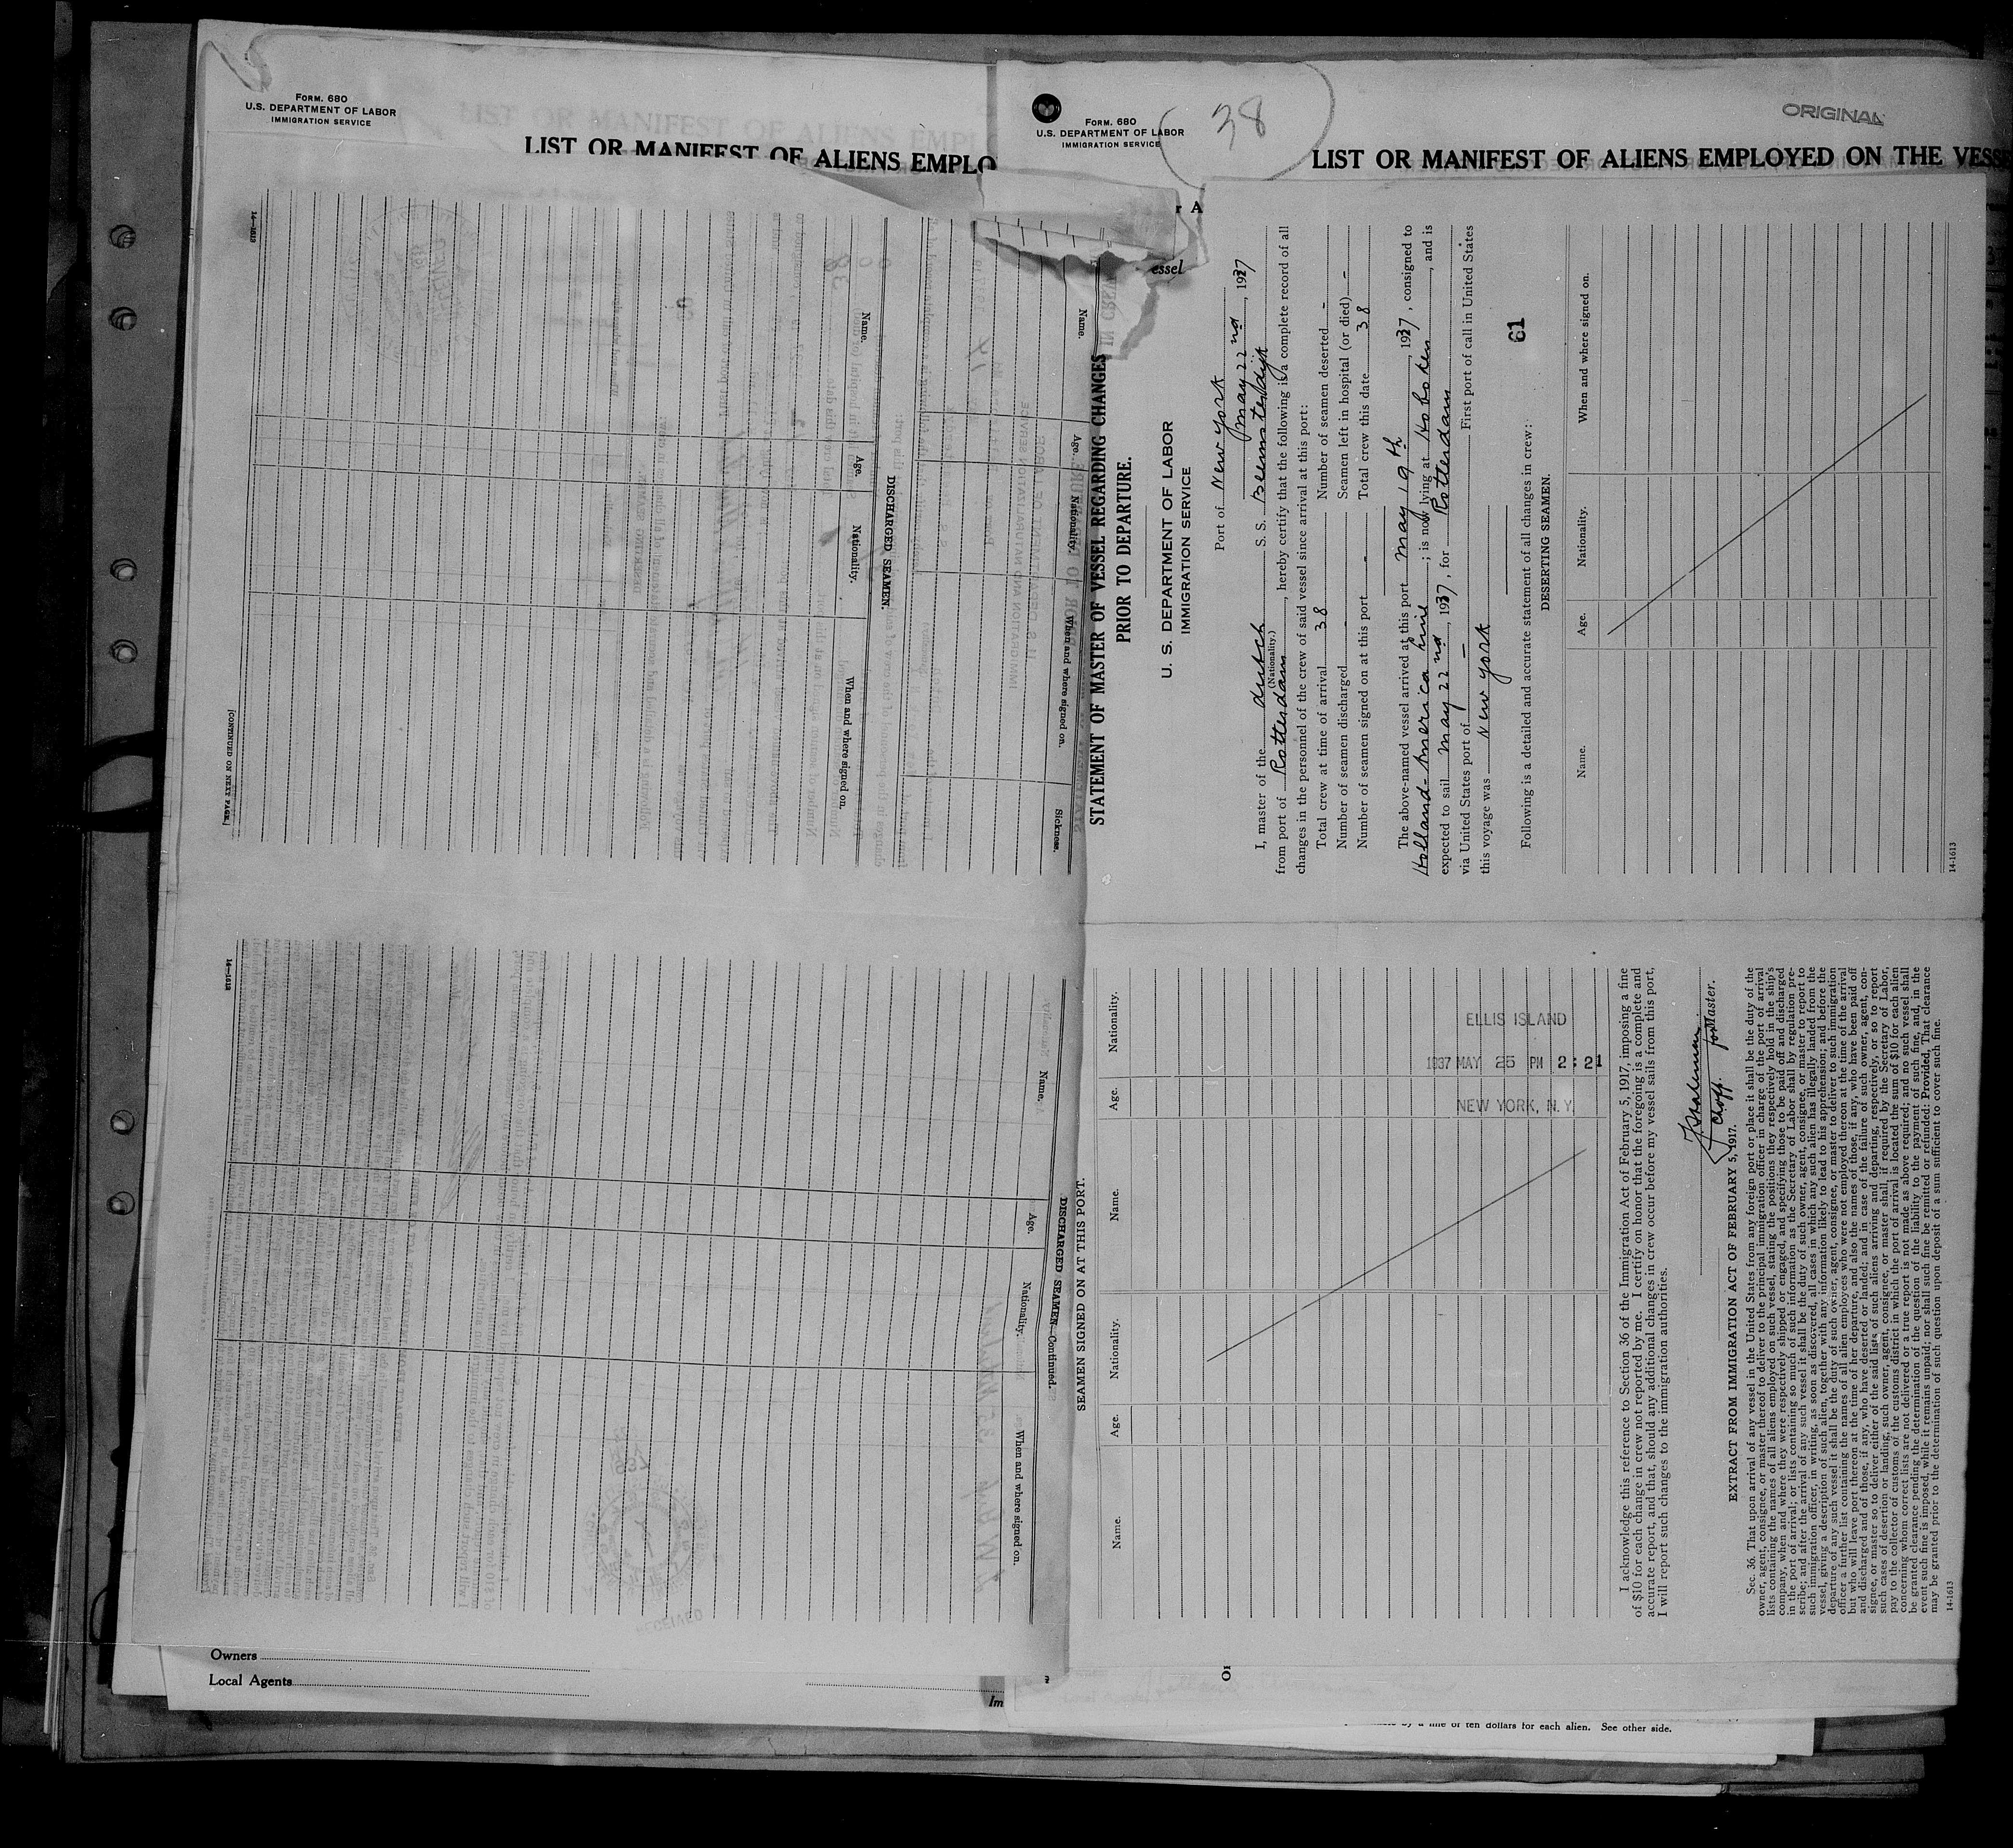 FORM. 680
U.S. DEPARTMENT OF LABOR
IMMIGRATION SERVICE
LIST OR MANIFEST OF ALIENS EMPLO
14—1613
Name.
Age.
Nationality.
When and where signed on.
Sickness.
DISCHARGED SEAMEN.
Name.
Age.
Nationality.
When and where signed on.
[CONTINUED ON NEXT PAGE.]
14—1613
DISCHARGED SEAMEN—Continued.
Name.
Age.
Nationality.
When and where signed on.
Owners
Local Agents
Im
FORM. 680
U.S. DEPARTMENT OF LABOR
IMMIGRATION SERVICE
38
ORIGINAL
LIST OR MANIFEST OF ALIENS EMPLOYED ON THE VESSE
r A
essel
STATEMENT OF MASTER OF VESSEL REGARDING CHANGES IN CREW
PRIOR TO DEPARTURE.
U. S. DEPARTMENT OF LABOR
IMMIGRATION SERVICE
Port of New York
May 22nd, 1937
I, master of the dutch S. S. Beemsterdijk
(Nationality.)
from port of Rotterdam, hereby certify that the following is a complete record of all
changes in the personnel of the crew of said vessel since arrival at this port:
Total crew at time of arrival 38 Number of seamen deserted -
Number of seamen discharged - Seamen left in hospital (or died) -
Number of seamen signed on at this port - Total crew this date 38
The above-named vessel arrived at this port May 19th, 1937, consigned to
Holland-America Line; is now lying at Hoboken, and is
expected to sail May 22nd, 1937, for Rotterdam
via United States port of — First port of call in United States
this voyage was New York
61
Following is a detailed and accurate statement of all changes in crew:
DESERTING SEAMEN.
Name. Age. Nationality. When and where signed on.
14-1613
SEAMEN SIGNED ON AT THIS PORT.
Name. Age. Nationality. Name. Age. Nationality.
ELLIS ISLAND
1937 MAY 25 PM 2:21
NEW YORK, N.Y.
I acknowledge this reference to Section 36 of the Immigration Act of February 5, 1917, imposing a fine
of $10 for each change in crew not reported by me. I certify on honor that the foregoing is a complete and
accurate report, and that, should any additional changes in crew occur before my vessel sails from this port,
I will report such changes to the immigration authorities.
for Master.
EXTRACT FROM IMMIGRATION ACT OF FEBRUARY 5, 1917.
Sec. 36. That upon arrival of any vessel in the United States from any foreign port or place it shall be the duty of the
owner, agent, consignee, or master thereof to deliver to the principal immigration officer in charge of the port of arrival
lists containing the names of all aliens employed on such vessel, stating the positions they respectively hold in the ship's
company, when and where they were respectively shipped or engaged, and specifying those to be paid off and discharged
in the port of arrival; or lists containing so much of such information as the Secretary of Labor shall by regulation pre-
scribe; and after the arrival of any such vessel it shall be the duty of such owner, agent, consignee, or master to report to
such immigration officer, in writing, as soon as discovered, all cases in which any such alien has illegally landed from the
vessel, giving a description of such alien, together with any information likely to lead to his apprehension; and before the
departure of any such vessel it shall be the duty of such owner, agent, consignee, or master to deliver to such immigration
officer a further list containing the names of all alien employees who were not employed thereon at the time of the arrival
but who will leave port thereon at the time of her departure, and also the names of those, if any, who have been paid off
and discharged and of those, if any, who have deserted or landed; and in case of the failure of such owner, agent, con-
signee, or master so to deliver either of the said lists of such aliens arriving and departing, respectively, or so to report
such cases of desertion or landing, such owner, agent, consignee, or master shall, if required by the Secretary of Labor,
pay to the collector of customs of the customs district in which the port of arrival is located the sum of $10 for each alien
concerning whom correct lists are not delivered or a true report is not made as above required; and no such vessel shall
be granted clearance pending the determination of the question of the liability to the payment of such fine, and, in the
event such fine is imposed, while it remains unpaid; nor shall such fine be remitted or refunded: Provided, That clearance
may be granted prior to the determination of such question upon deposit of a sum sufficient to cover such fine.
14-1613
of ten dollars for each alien. See other side.